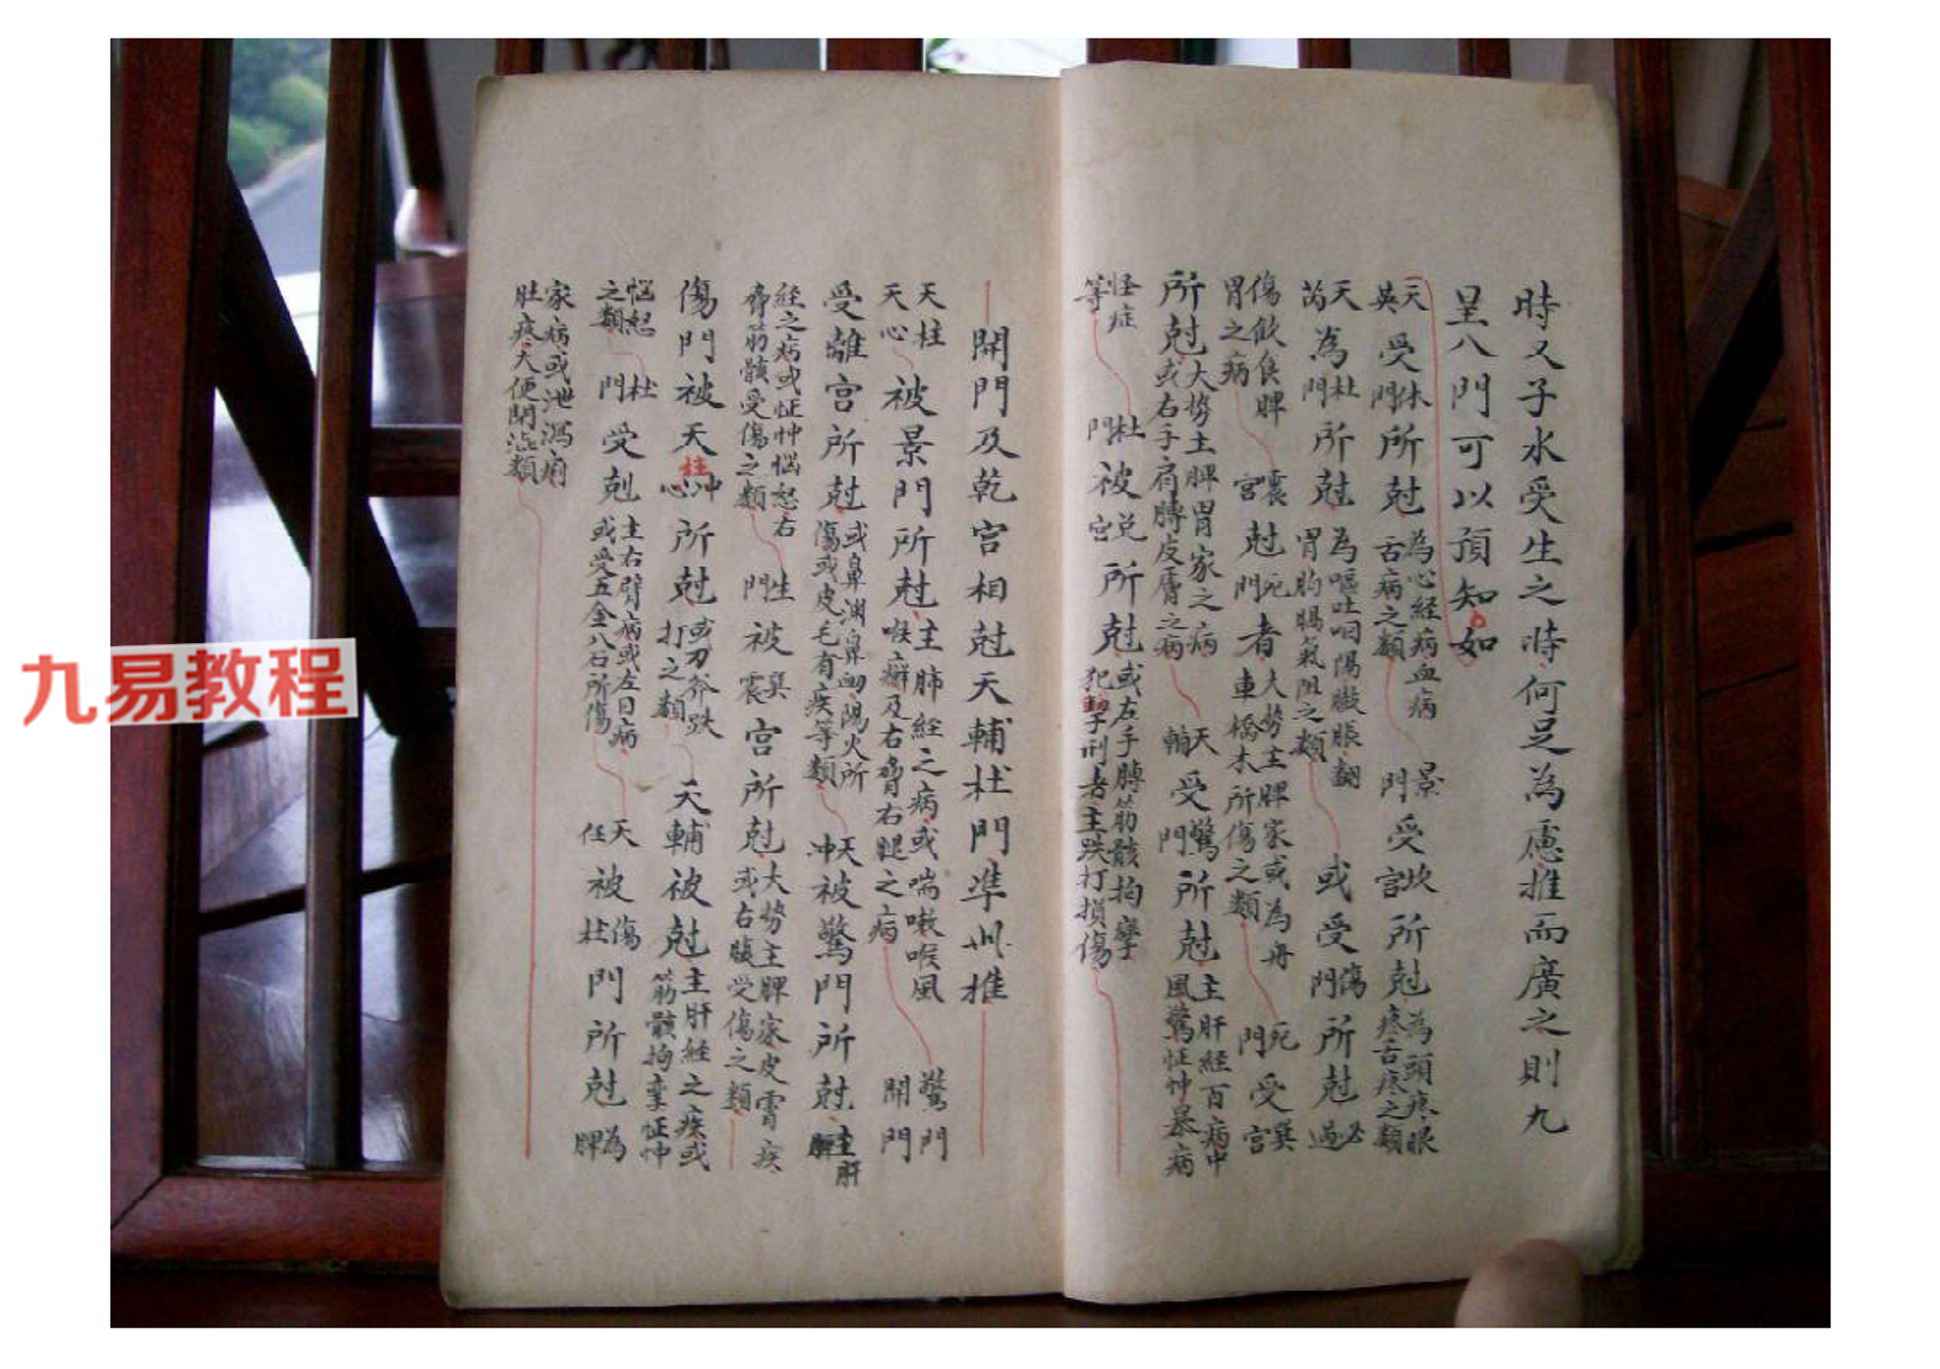 時又子水受生之時何足為慮推而廣之則九
星八門可以預知如
天英受休門所尅為心經病血病舌病之類 景門受坎所尅為頭疼眼疼舌疼之類
天芮為杜門所尅為嘔吐胃 或受傷門所尅必過
傷飲食脾胃之病 震宮尅死門者大勢主脾家或為舟車橋木所傷之類 死門受巽宮
所尅大勢主脾胃家之病或右手肩膊皮膚之病 天輔受驚門所尅主肝經百病中風驚怔忡暴病
怪症等 杜門被兌宮所尅或左手膊筋骸拘攣犯刑者主跌打損傷
開門及乾宮相尅天輔杜門準此推
天柱天心被景門所尅主肺經之病或喘嗽喉風喉癬及右脅右腿之病 驚門開門
受離宮所尅或鼻淵鼻衄湯火所傷或皮毛有疾等類 天冲被驚門所尅主肝
經之病或怔忡惱怒右脅筋骸受傷之類 生門被巽震宮所尅大勢主脾家皮膚疾或右腿受傷之類
傷門被天柱心所尅或刀斧跌打之類 天輔被尅主肝經之疾或筋骸拘攣怔忡
惱怒之類 杜門受尅主右臂病或左目病或受五金八石所傷 天任被傷杜門所尅為脾
家病或泄瀉痢肚疼大便閉澁類
九易教程